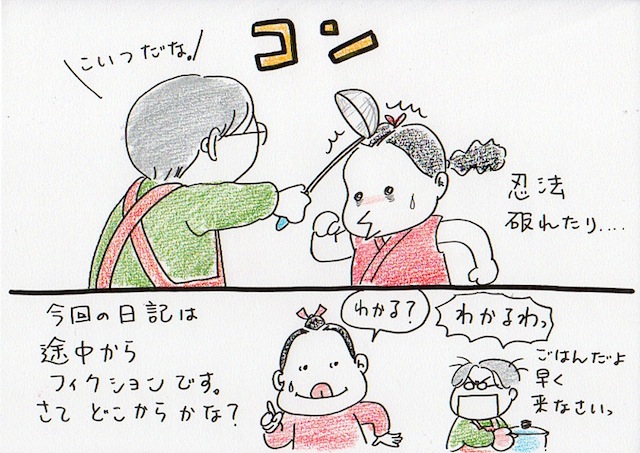 こいつだな。
コン
忍法
破れたり....
今回の日記は
途中から
フィクションです。
さて どこからかな?
わかる?
わかるわっ
ごはんだよ
早く
来なさいっ